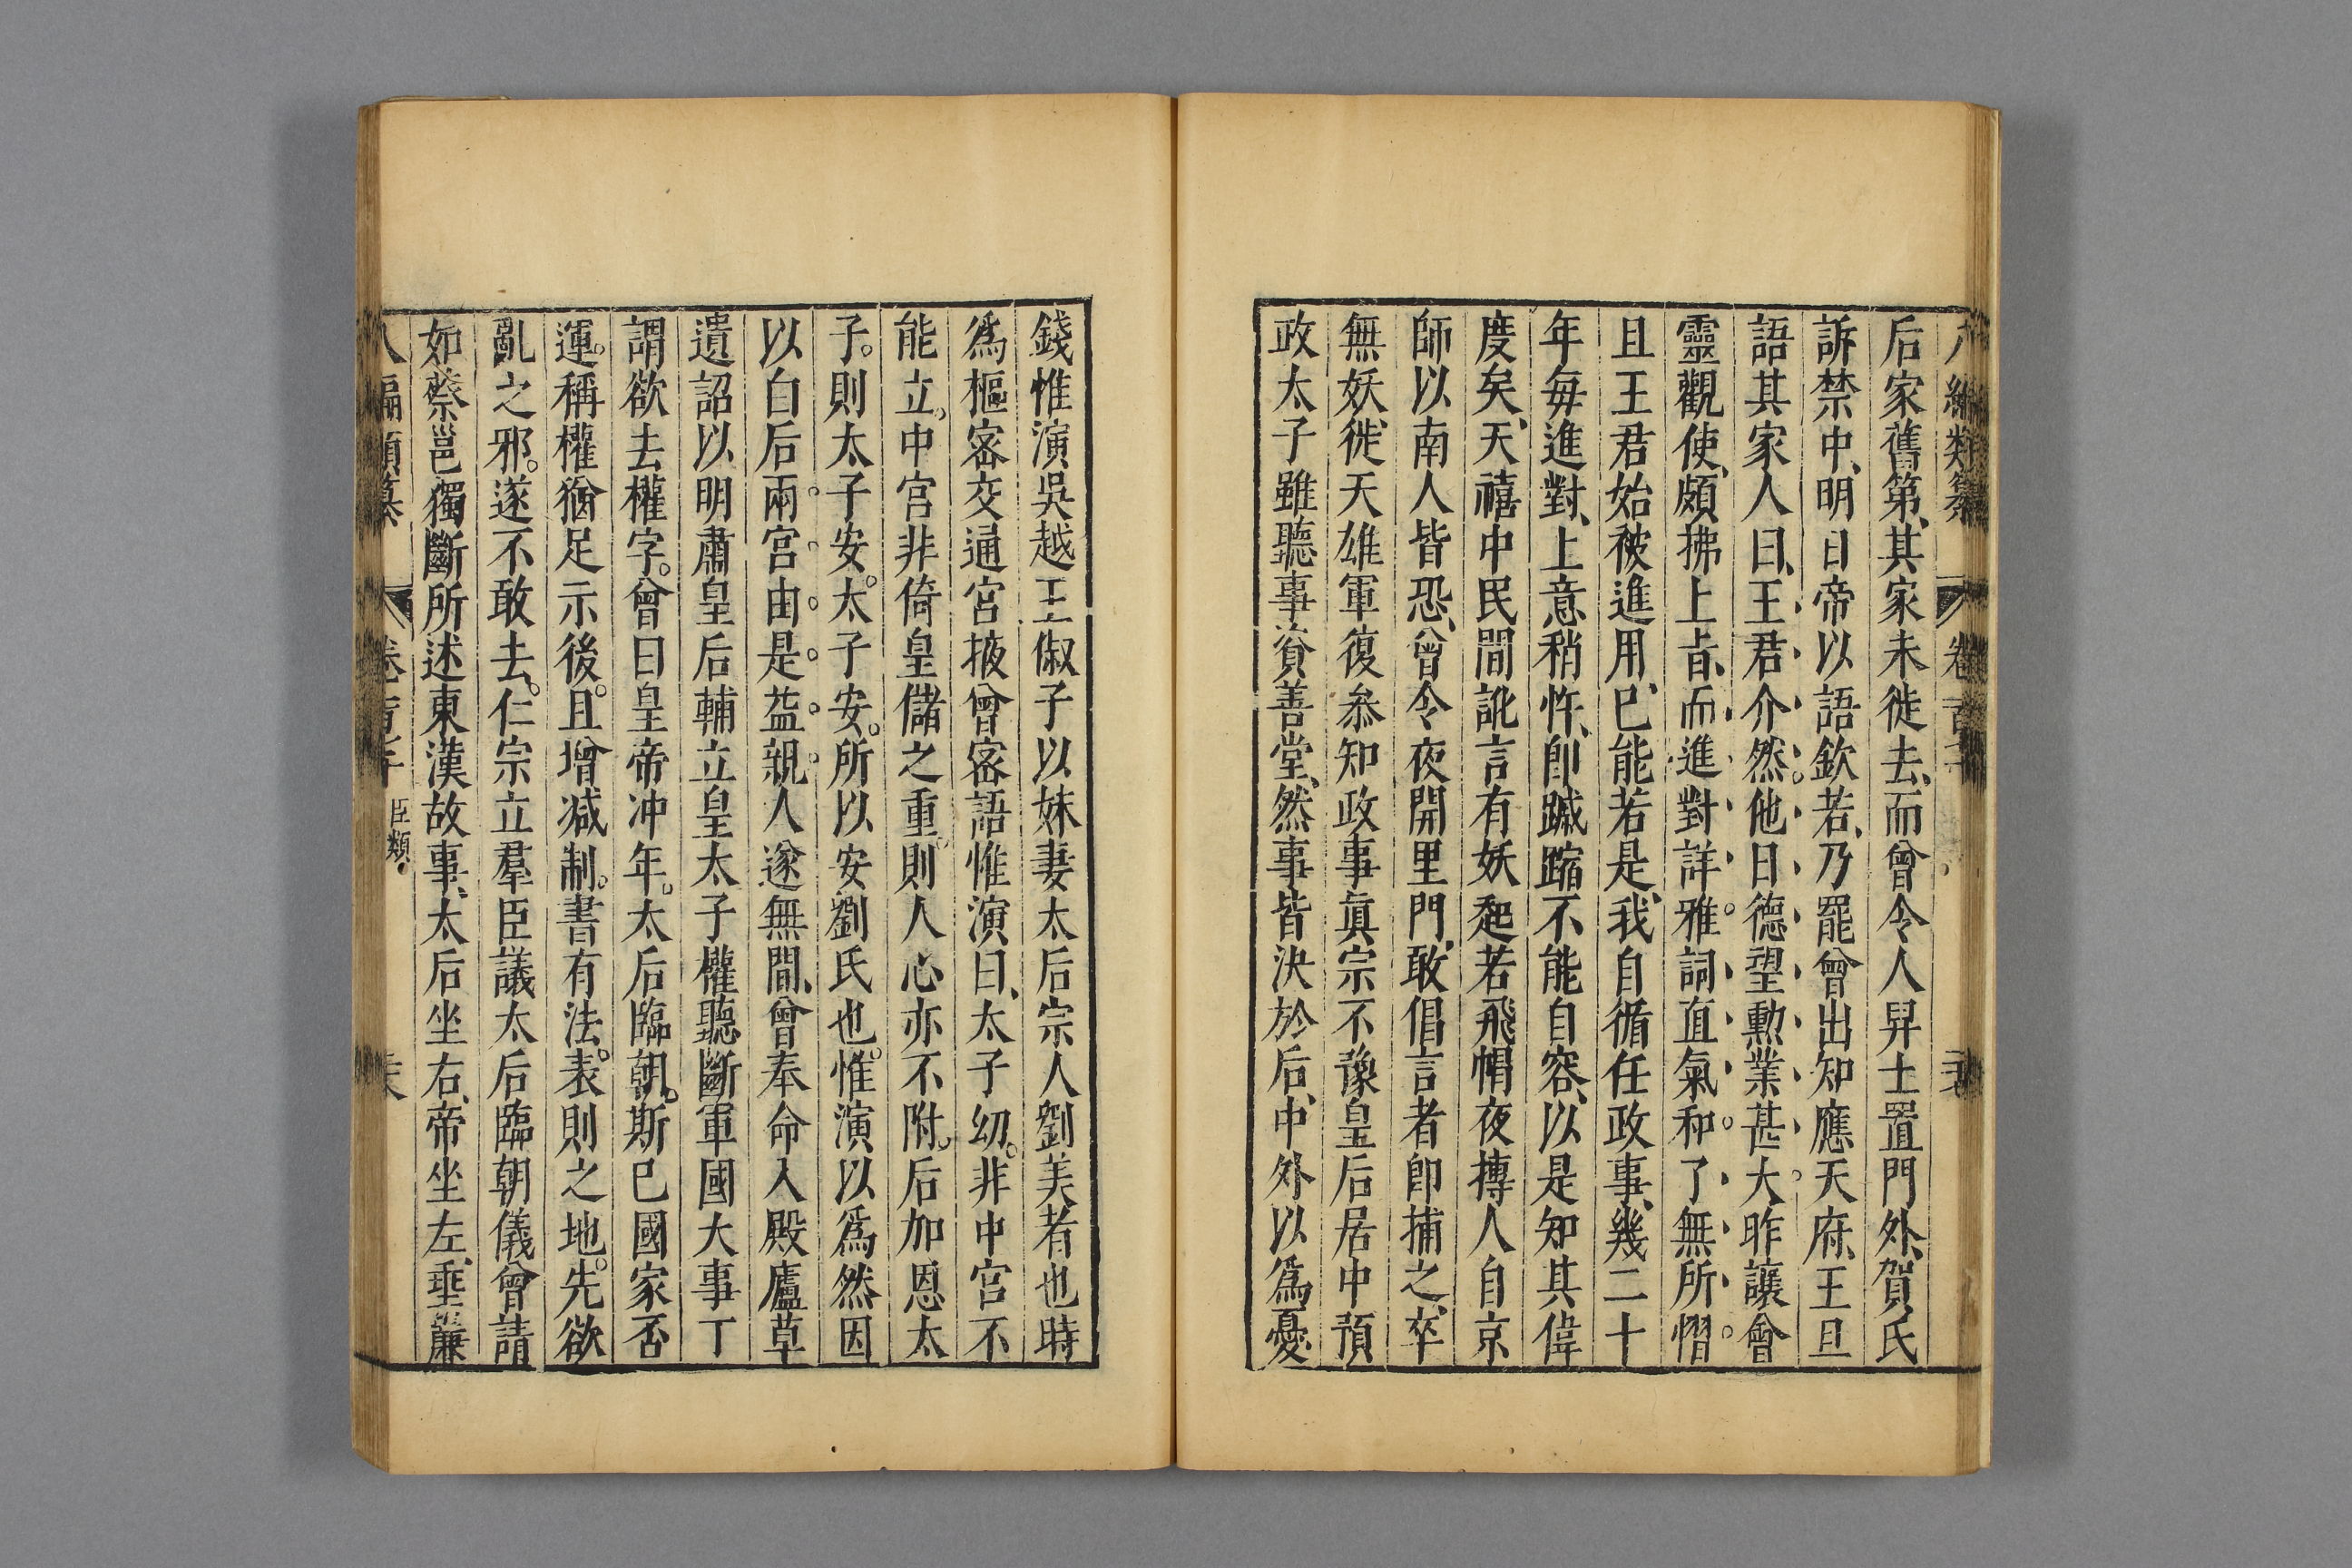 后家舊第、其家未徙去、而曾令人舁土置門外、賀氏
訴禁中、明日帝以語欽若、乃罷曾出知應天府、王旦
語其家人曰、王君介然。他日德望勳業甚大。昨讓會
靈觀使、頗拂上旨、而進對詳雅。詞直氣和。了無所慴。
且王君始被進用、已能若是、我自循任政事、幾二十
年每進對、上意稍忤、卽蹴踏不能自容、以是知其偉
度矣、天禧中民間訛言有妖起若飛帽夜搏人自京
師以南人皆恐、曾令夜開里門、敢倡言者卽捕之、卒
無妖、徙天雄軍復叅知政事眞宗不豫皇后居中預
政太子雖聽事資善堂、然事皆決於后、中外以爲憂
錢惟演吳越王俶子以妹妻太后宗人劉美者也時
爲樞密交通宮掖曾密語惟演曰、太子幼。非中宮不
能立。中宮非倚皇儲之重。則人心亦不附。后加恩太
子。則太子安。太子安。所以安劉氏也。惟演以爲然因
以白后兩宮由是益親人遂無間、曾奉命入殿廬草
遺詔以明肅皇后輔立皇太子權聽斷軍國大事丁
謂欲去權字。曾曰皇帝冲年。太后臨朝。斯已國家否
運。稱權猶足示後。且增减制。書有法。表則之地。先欲
亂之邪。遂不敢去。仁宗立羣臣議太后臨朝儀曾請
如蔡邕獨斷所述東漢故事、太后坐右、帝坐左、垂簾
八編類纂 卷 臣類